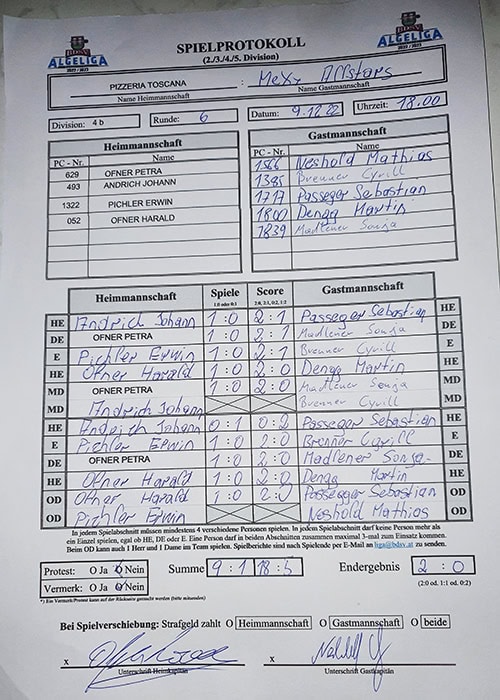 BDSV
ALGELIGA
2022 / 2023
SPIELPROTOKOLL
(2./3./4./5. Division)
BDSV
ALGELIGA
2022 / 2023
PIZZERIA TOSCANA : MeXx Allstars
Name Heimmannschaft Name Gastmannschaft
Division: 4 b Runde: 6 Datum: 9.12.22 Uhrzeit: 18.00
Heimmannschaft Gastmannschaft
PC - Nr. Name PC - Nr. Name
629 OFNER PETRA 1566 Neshold Mathias
493 ANDRICH JOHANN 1385 Brenner Cyrill
1322 PICHLER ERWIN 1717 Passeger Sebastian
052 OFNER HARALD 1800 Dengg Martin
1839 Madlener Sonja
Heimmannschaft Spiele Score Gastmannschaft
1:0 oder 0:1 2:0, 2:1, 0:2, 1:2
HE Andrich Johann 1:0 2:1 Passeger Sebastian HE
DE OFNER PETRA 1:0 2:1 Madlener Sonja DE
E Pichler Erwin 1:0 2:1 Brenner Cyrill E
HE Ofner Harald 1:0 2:0 Dengg Martin HE
MD OFNER PETRA 1:0 2:0 Madlener Sonja MD
MD Andrich Johann Brenner Cyrill MD
HE Andrich Johann 0:1 0:2 Passeger Sebastian HE
E Pichler Erwin 1:0 2:0 Brenner Cyrill E
DE OFNER PETRA 1:0 2:0 Madlener Sonja DE
HE Ofner Harald 1:0 2:0 Dengg Martin HE
OD Ofner Harald 1:0 2:0 Passeger Sebastian OD
OD Pichler Erwin Neshold Mathias OD
In jedem Spielabschnitt müssen mindestens 4 verschiedene Personen spielen. In jedem Spielabschnitt darf keine Person mehr als
ein Einzel spielen, egal ob HE, DE oder E. Eine Person darf in beiden Abschnitten zusammen maximal 3-mal zum Einsatz kommen.
Beim OD kann auch 1 Herr und 1 Dame im Team spielen. Spielberichte sind nach Spielende per E-Mail an liga@bdsv.at zu senden.
Protest: O Ja O Nein Summe 9:1 18:5 Endergebnis 2:0
Vermerk: * O Ja O Nein (2:0 od. 1:1 od. 0:2)
*) Ein Vermerk/Protest kann auf der Rückseite gemacht werden (bitte mitsenden)
Bei Spielverschiebung: Strafgeld zahlt O Heimmannschaft O Gastmannschaft O beide
x x
Unterschrift Heimkapitän Unterschrift Gastkapitän